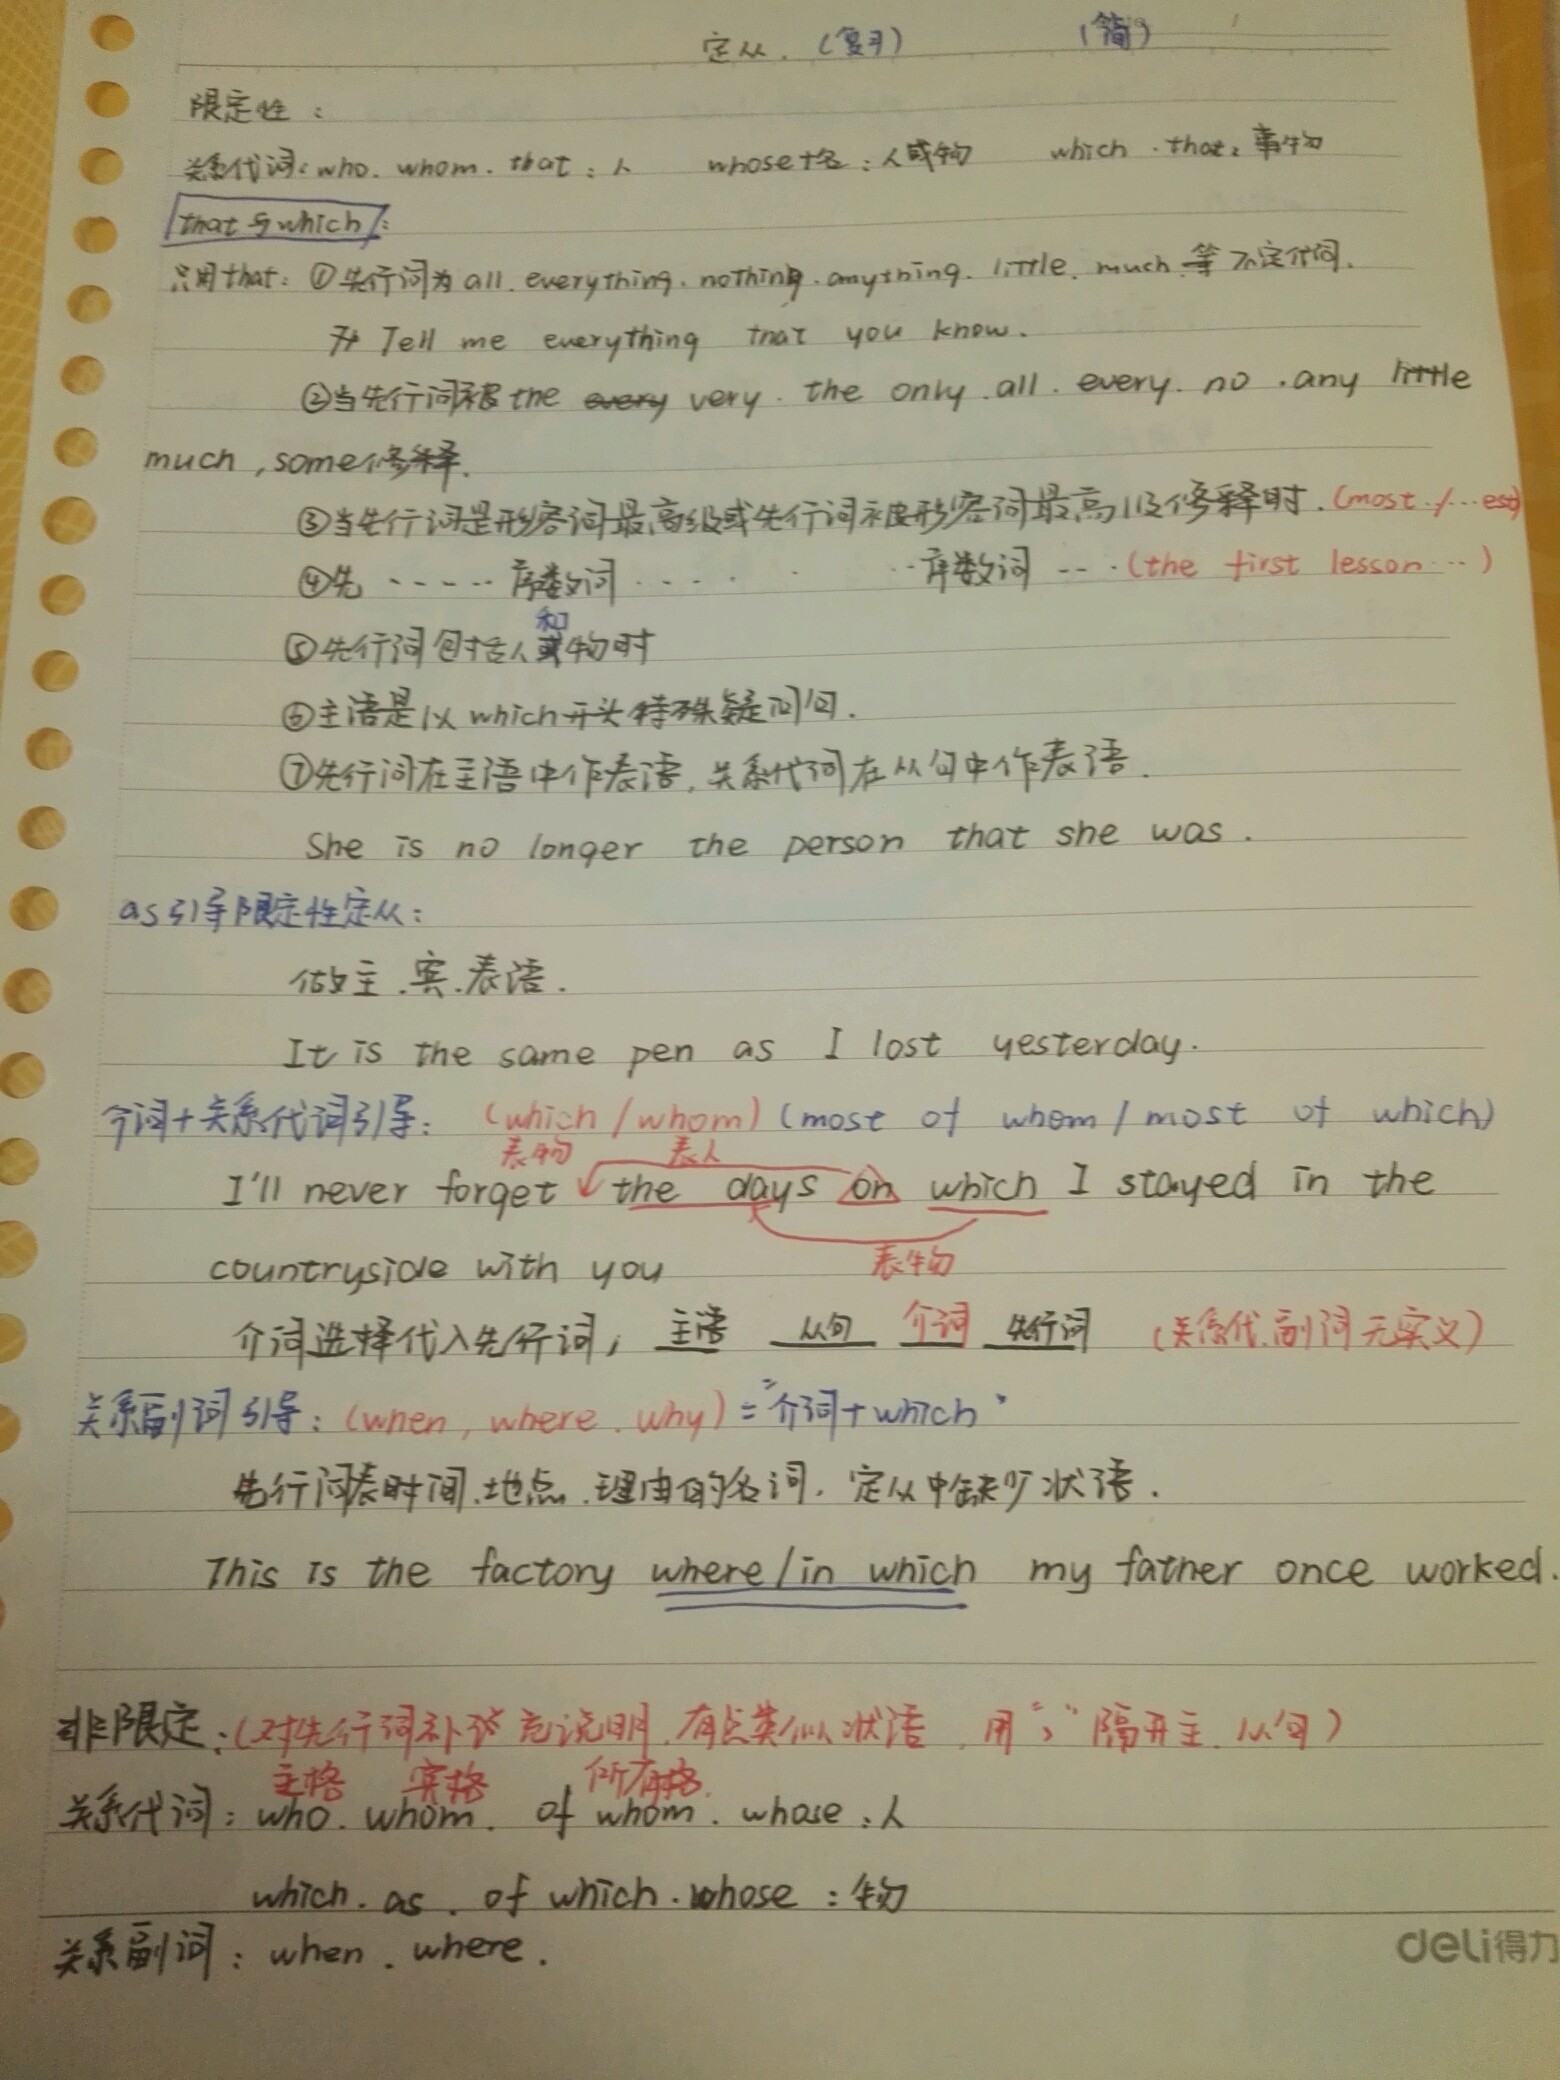 定从.(复习) (简)
限定性:
关系代词:who. whom. that:人 whose+名:人或物 which.that:事物
that与which:
只用that:①先行词为all.everything.nothing.anything.little.much.等不定代词.
Tell me everything that you know.
②当先行词被the very.the only.all.every.no.any
much,some修释.
③当先行词是形容词最高级或先行词被形容词最高级修释时.(most./...est)
④先.....序数词..... ..序数词...(the first lesson...)
和
⑤先行词包括人或物时
⑥主语是以which开头特殊疑问句.
⑦先行词在主语中作表语,关系代词在从句中作表语.
She is no longer the person that she was.
as引导限定性定从:
做主.宾.表语.
It is the same pen as I lost yesterday.
介词+关系代词引导:(which/whom)(most of whom/most of which)
表物 表人
I'll never forget the days on which I stayed in the
表物
countryside with you
介词选择代入先行词, 主语 从句 介词 先行词 (关系代.副词无实义)
关系副词引导:(when,where.why)="介词+which"
先行词表时间.地点.理由的名词.定从中缺少状语.
This is the factory where/in which my father once worked.
非限定:(对先行词补充说明.有点类似状语.用","隔开主.从句)
主格 宾格 所有格.
关系代词:who.whom.of whom.whose:人
which.as.of which.whose:物
关系副词:when.where.
deli得力